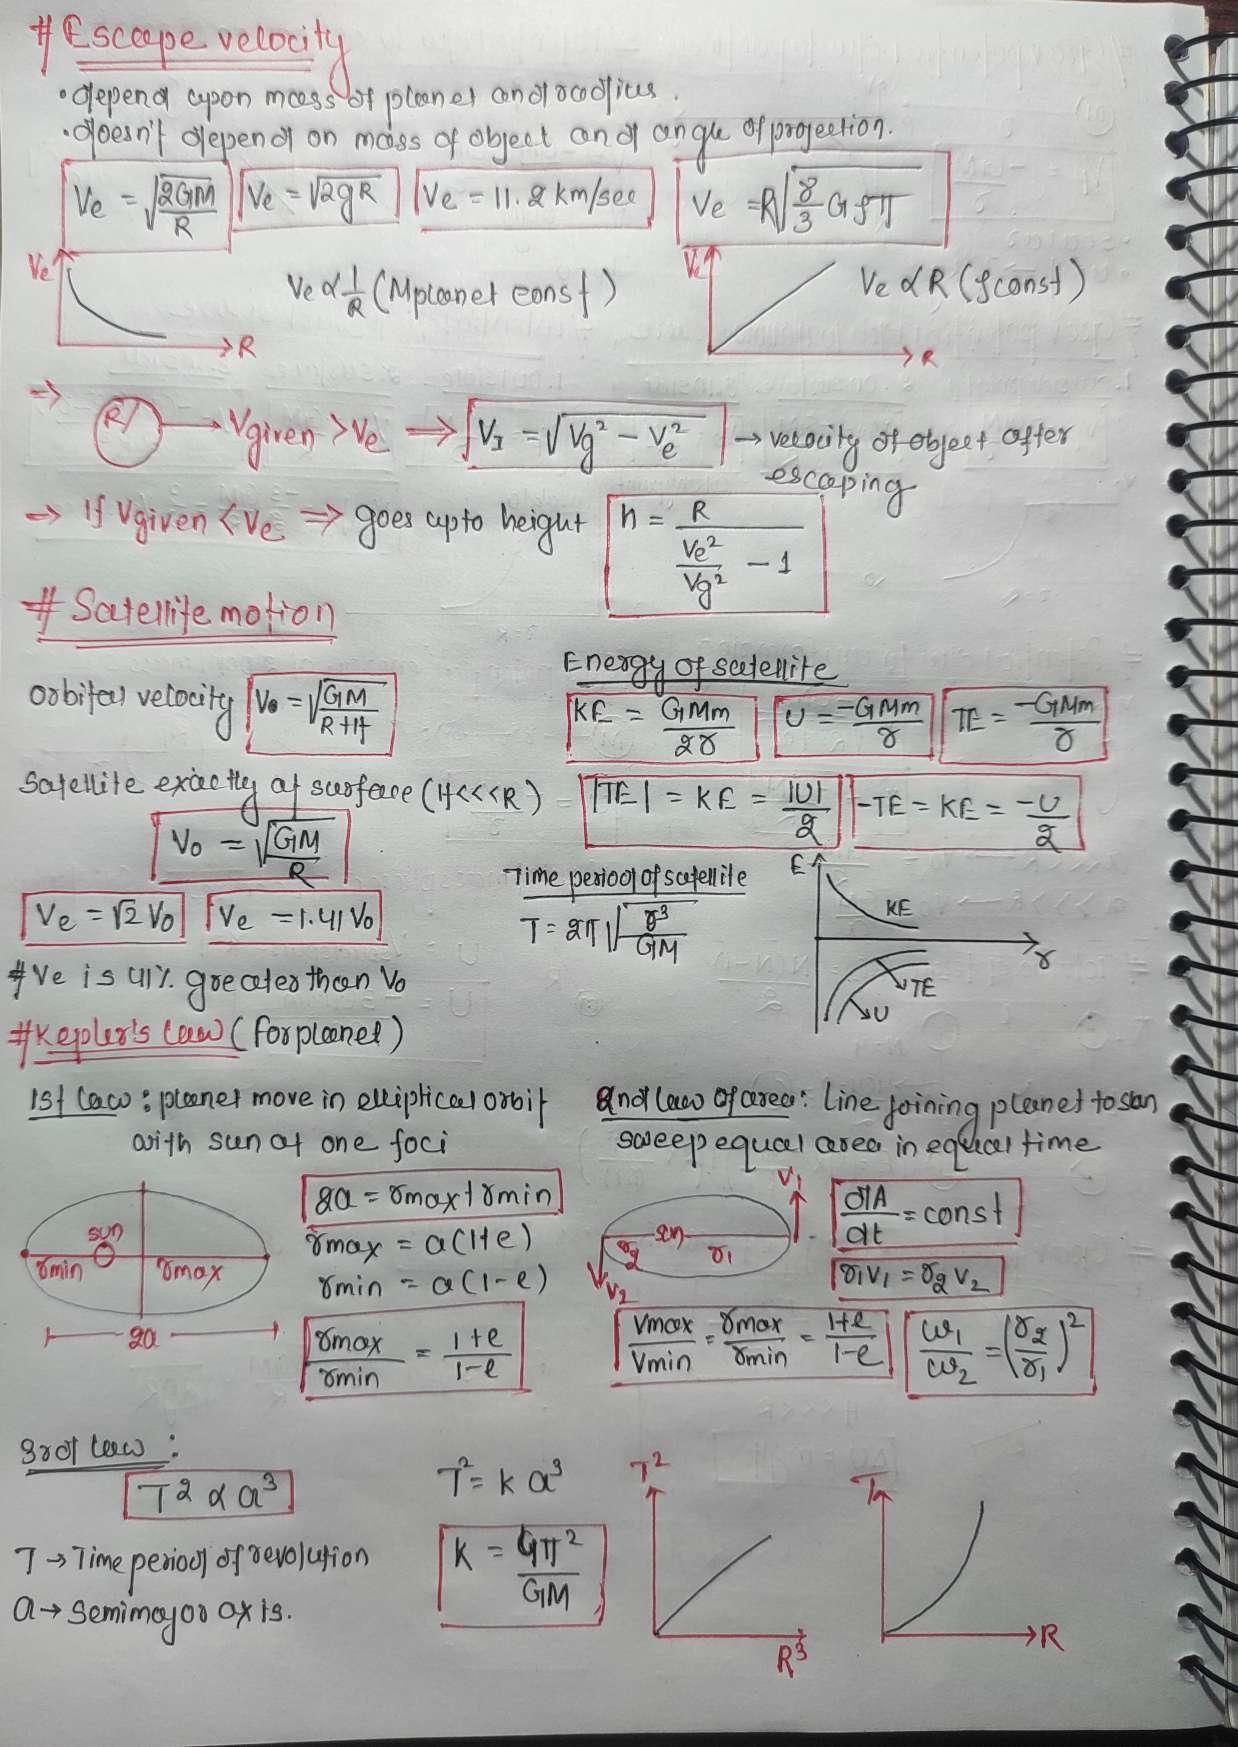 # Escape velocity
• depend upon mass of planet and radius.
• doesn't depend on mass of object and angle of projection.
Ve = √(2GM/R) Ve = √2gR Ve = 11.2 km/sec Ve = R√(8/3 Gρπ)
Ve R Ve ∝ 1/R (Mplanet const) Ve R Ve ∝ R (ρ const)
⇒ R → Vgiven > Ve ⇒ VI = √(Vg² − Ve²) → velocity of object after
escaping
⇒ If Vgiven < Ve ⇒ goes upto height h = R/(Ve²/Vg² − 1)
# Satellite motion
orbital velocity Vo = √(GM/R+H)
Energy of satellite
KE = GMm/2r U = −GMm/r TE = −GMm/r
Satellite exactly at surface (H<<<R)
|TE| = KE = |U|/2 −TE = KE = −U/2
Vo = √(GM/R)
Ve = √2 Vo Ve = 1.41 Vo
Time period of satellite
T = 2π√(r³/GM)
E KE r TE U
# Ve is 41% greater than Vo
# Kepler's Law (for planet)
1st Law : planet move in elliptical orbit
with sun at one foci
2nd law of area : Line joining planet to sun
sweep equal area in equal time
sun rmin rmax 2a
2a = rmax + rmin
rmax = a(1+e)
rmin = a(1−e)
rmax/rmin = 1+e/1−e
V1 sun r2 r1 V2
dA/dt = const
r1V1 = r2V2
Vmax/Vmin = rmax/rmin = 1+e/1−e ω1/ω2 = (r2/r1)²
3rd Law :
T² ∝ a³
T² = k a³
T → Time period of revolution
a → Semimajor axis.
K = 4π²/GM
T² R³
T R